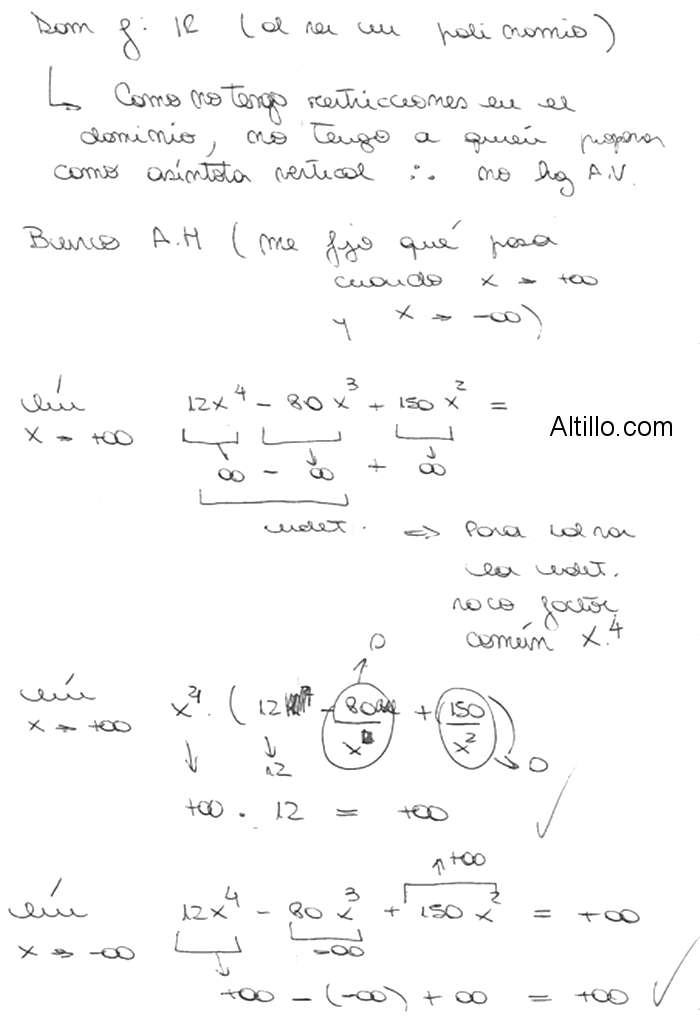 Dom f: IR (al ser un polinomio)
↳ Como no tengo restricciones en el
dominio, no tengo a quién proponer
como asíntota vertical ∴ no hay A.V.
Busco A.H (me fijo qué pasa
cuando x → +∞
y x → -∞)
lím 12x⁴ - 80x³ + 150x² =
x → +∞
Altillo.com
∞ - ∞ + ∞
indet. ⇒ Para salvar
la indet.
saco factor
común x⁴
0
lím x⁴ · (12 - 80/x + 150/x²)
x → +∞
12 0
+∞ · 12 = +∞ ✓
+∞
lím 12x⁴ - 80x³ + 150x² = +∞
x → -∞
-∞
+∞ - (-∞) + ∞ = +∞ ✓